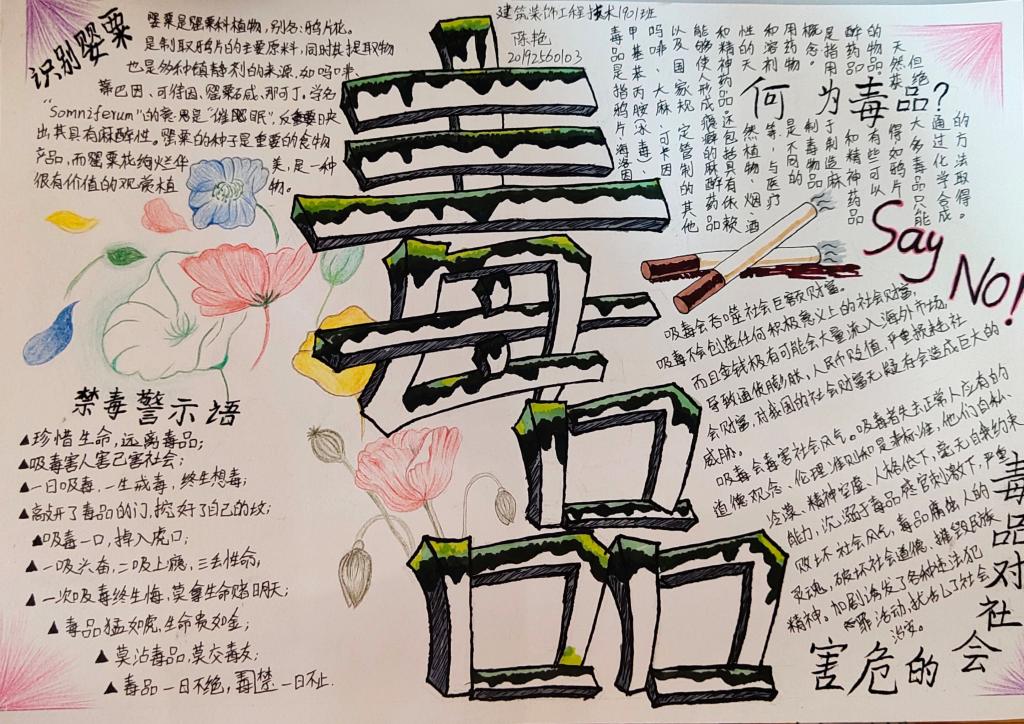 识别罂粟
罂粟是罂粟科植物，别名：鸦片花。
是制取鸦片的主要原料，同时其提取物
也是多种镇静剂的来源，如吗啡、
蒂巴因、可待因、罂粟碱、那可丁，学名
"Somniferum"的意思是"催眠"，反映
出其具有麻醉性。罂粟的种子是重要的食物
产品，而罂粟花绚烂华美，是一种
很有价值的观赏植物。
建筑装饰工程技术1901班
陈艳
20192560103
毒品
何为毒品？
毒品是指鸦片、海洛因、
甲基苯丙胺(冰毒)、
吗啡、大麻、可卡因
以及国家规定管制的其他
能够使人形成瘾癖的麻醉药品
和精神药品。还包括具有依赖
性的天然植物、烟、酒
和溶剂等，与医疗
用药物是不同的
概念。
是指用
醉药品
的物品
天然
但绝大多
通过化学合成
的方法取得。
Say No!
吸毒会吞噬社会巨额财富。
吸毒不会创造任何积极意义上的社会财富，
而且金钱极有可能会大量流入海外市场，
导致通货膨胀，人民币贬值，严重损耗社
会财富，对我国的社会财富无疑存会造成巨大的
威胁。
吸毒会毒害社会风气。吸毒者失去正常人应有的
道德观念、伦理准则和是非标准，他们自私、
冷漠、精神空虚、人格低下，毫无自我约束
能力，沉溺于毒品感官刺激下，严重
败坏社会风气，毒品腐蚀人的
灵魂，破坏社会道德，摧毁民族
精神。加剧诱发了各种违法犯
罪活动，扰乱了社会
治安。
毒品对社会的危害
禁毒警示语
▲珍惜生命，远离毒品；
▲吸毒害人害己害社会；
▲一日吸毒，一生戒毒，终生想毒；
▲敲开了毒品的门，挖好了自己的坟；
▲吸毒一口，掉入虎口；
▲一吸兴奋，二吸上瘾，三丢性命，
▲一次吸毒终生悔，莫拿生命赌明天；
▲毒品猛如虎，生命贵如金；
▲莫沾毒品，莫交毒友；
▲毒品一日不绝，禁毒一日不止.